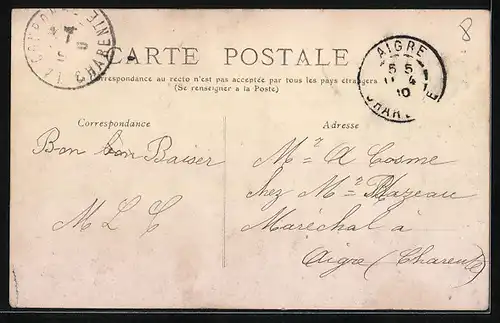 8
LA COURONNE CHARENTE
CARTE POSTALE
AIGRE
5 5
11 4
10
CHARENTE
Correspondance au recto n'est pas acceptée par tous les pays étrangers
(Se renseigner à la Poste)
Correspondance
Adresse
Bon bon Baiser
M L C
Mr A Cosme
chez Mr Mazeau
Maréchal à
Aigre (Charente)